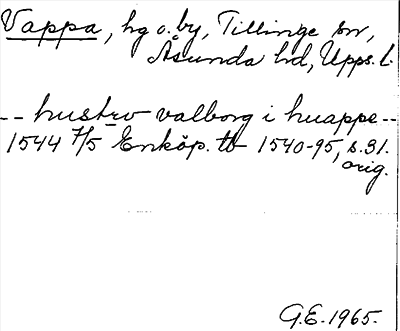 Vappa, hg o. by, Tillinge sn,
Åsunda hd, Upps. l.
-- hustrv valborg i huappe --
1544 7/5 Enköp. tb 1540-95, s. 31.
orig.
G.E. 1965.